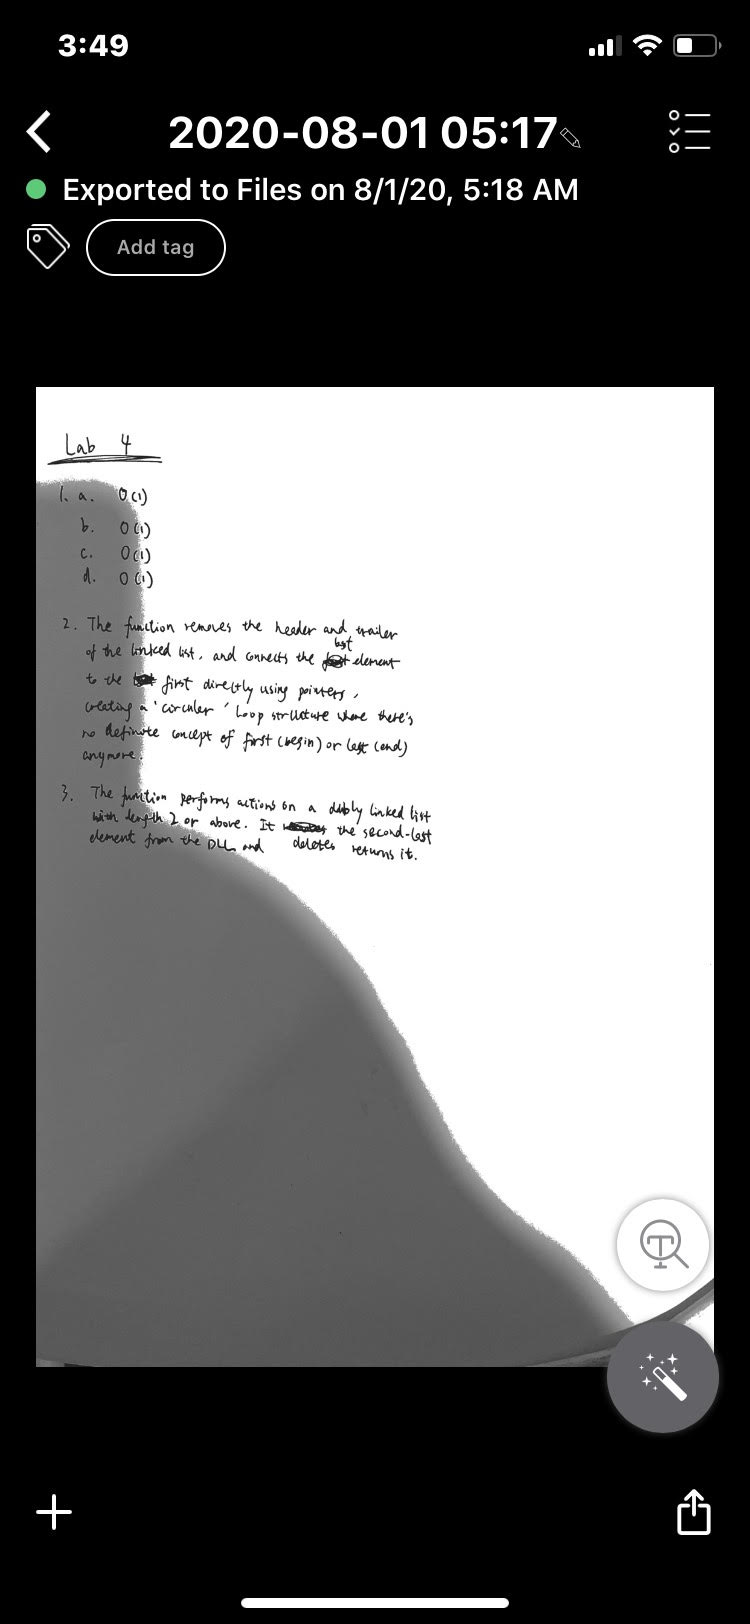 3:49
2020-08-01 05:17
Exported to Files on 8/1/20, 5:18 AM
Add tag
Lab 4
1. a. O(1)
b. O(1)
c. O(1)
d. O(1)
2. The function removes the header and trailer
of the linked list, and connects the last element
to the first directly using pointers,
creating a 'circular' loop structure where there's
no definite concept of first (begin) or last (end)
anymore.
3. The function performs actions on a dubly linked list
with length 2 or above. It deletes the second-last
element from the DLL and returns it.